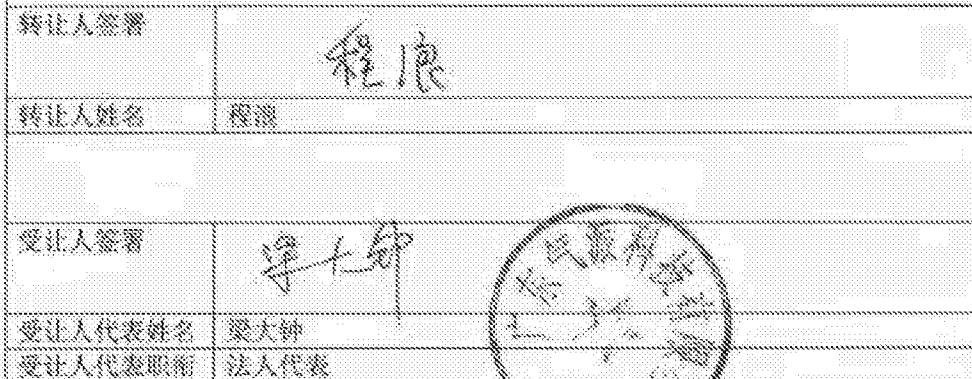 转让人签署
程浪
转让人姓名 程浪
受让人签署
梁大钟
受让人代表姓名 梁大钟
受让人代表职衔 法人代表